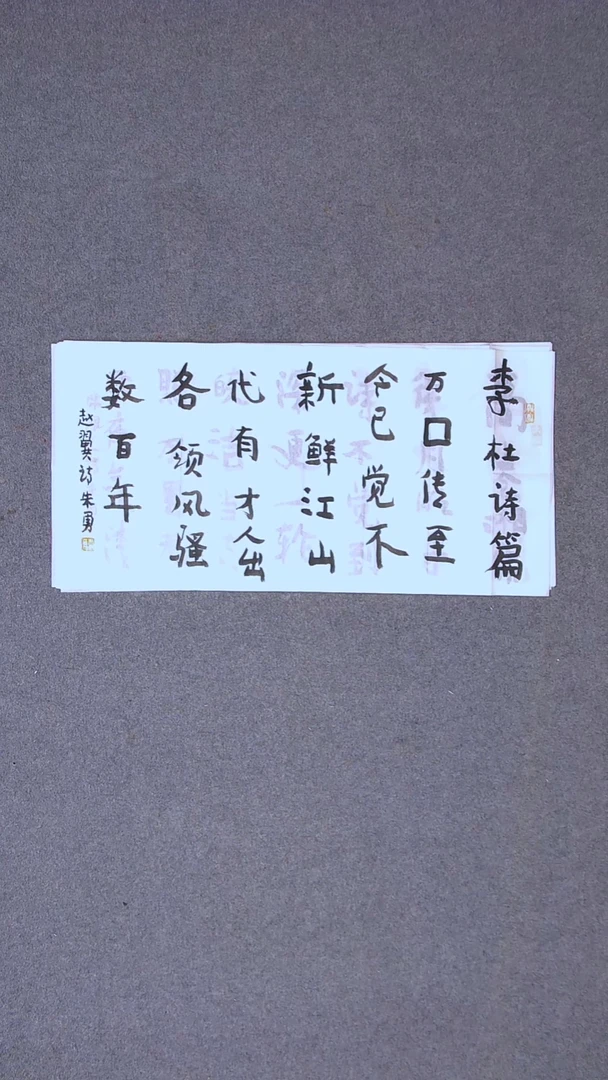 李杜诗篇
万口传至
今已觉不
新鲜江山
代有才人出
各领风骚
数百年
赵翼诗朱勇